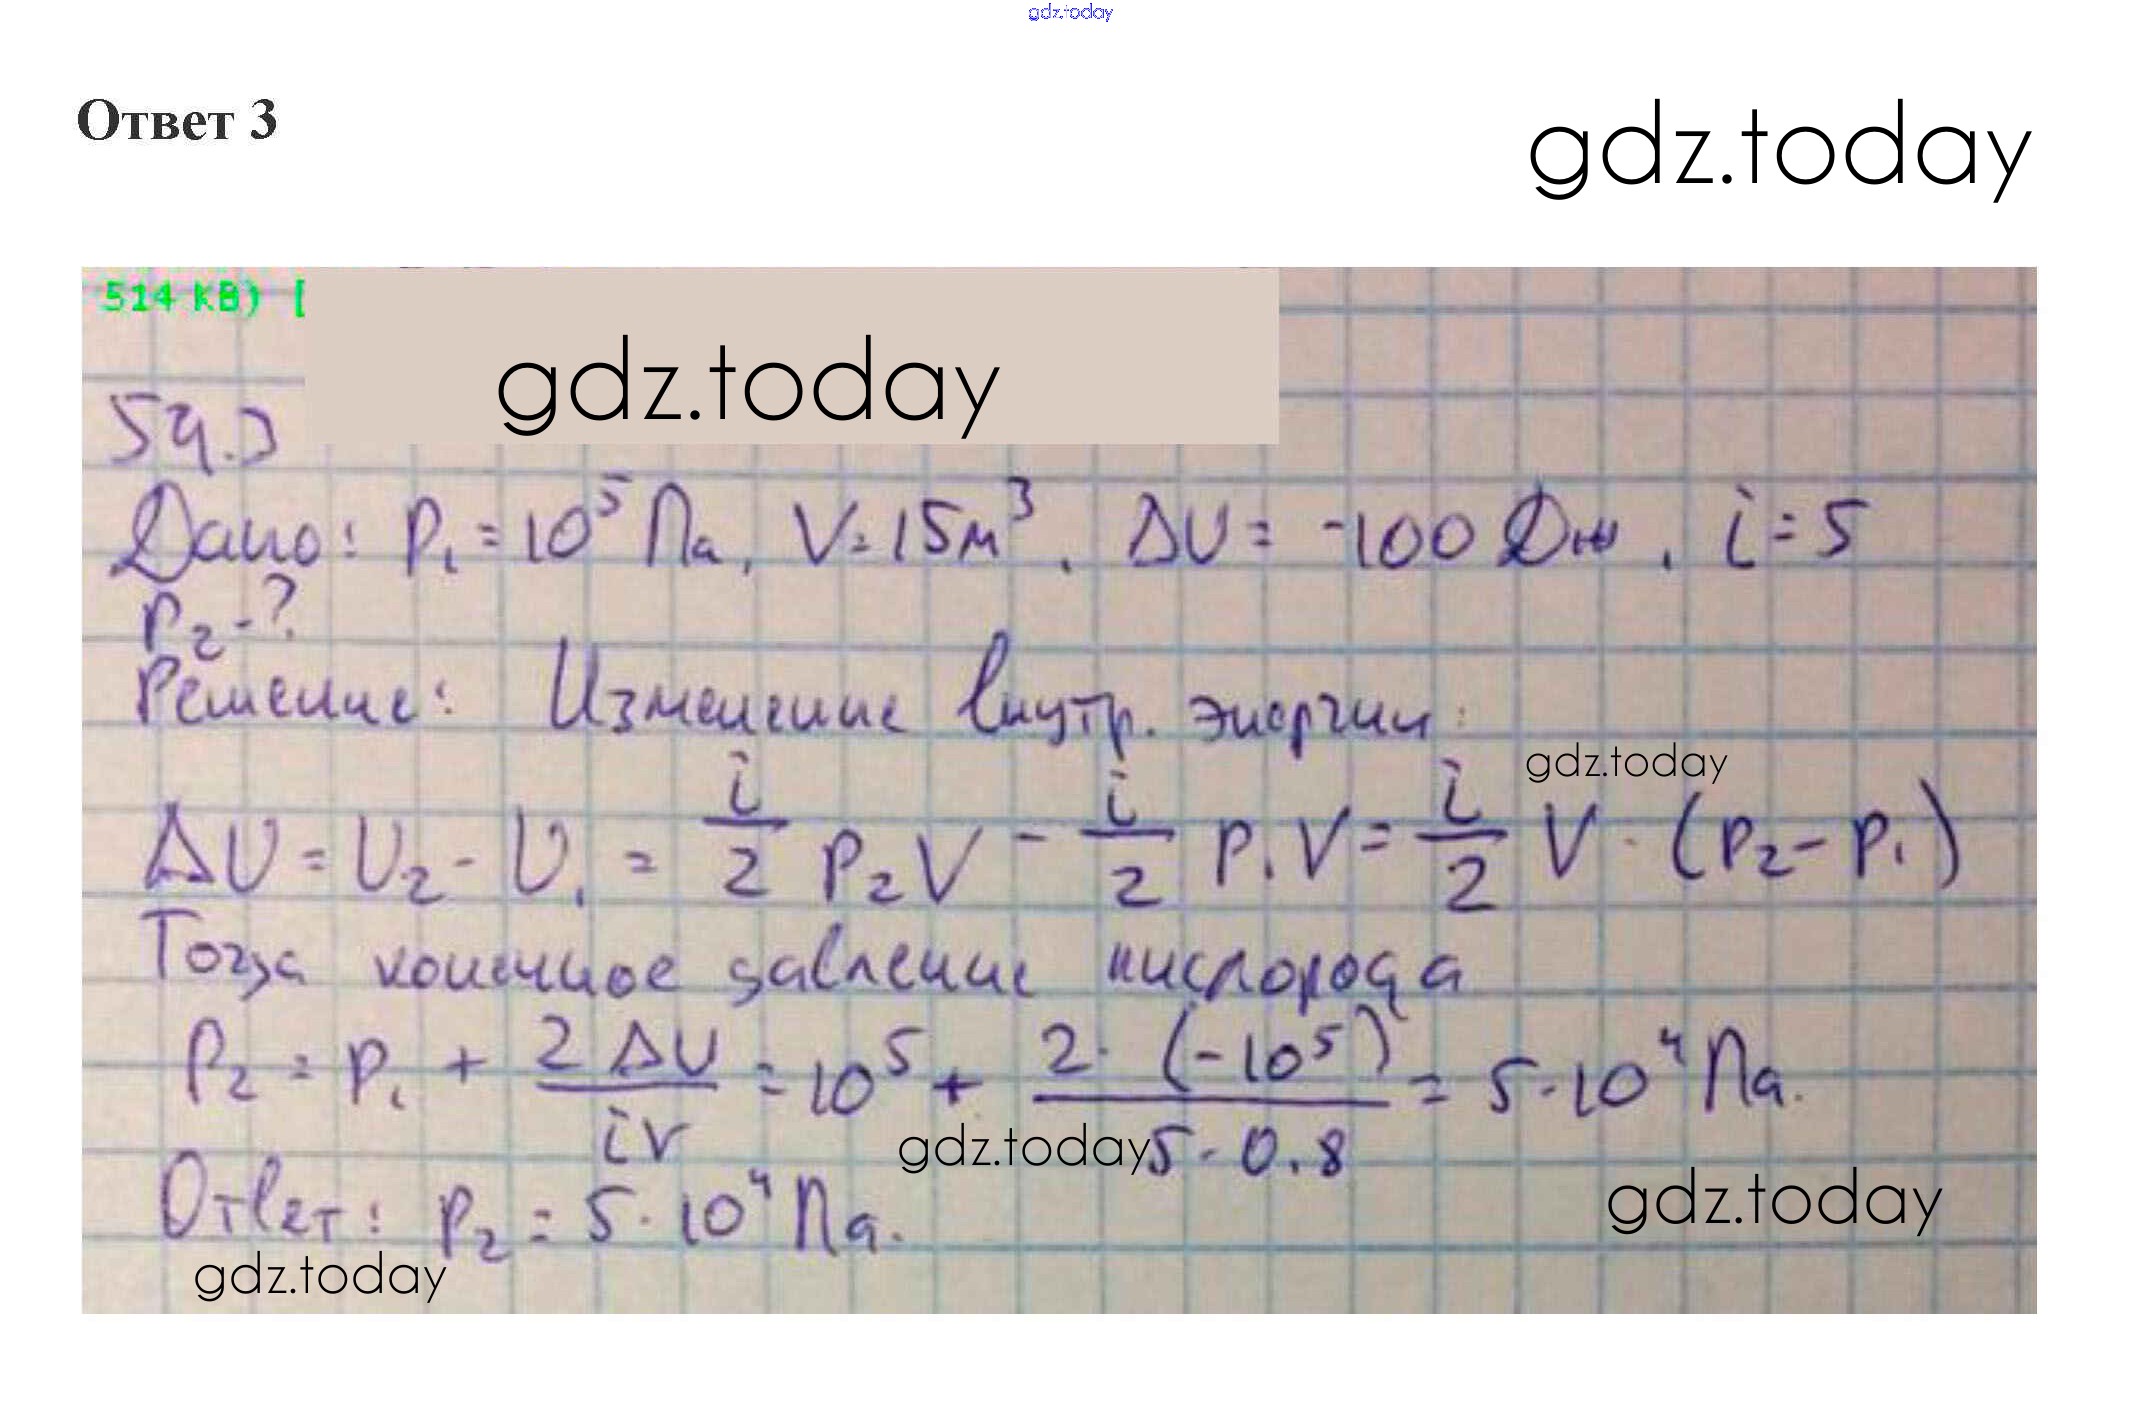 gdz.today
Ответ 3
gdz.today
514 KB) [
gdz.today
54.3
Дано: P₁ = 10⁵ Па, V = 15 м³, ΔU = -100 Дж, i = 5
P₂ - ?
Решение: Изменение внутр. энергии:
gdz.today
ΔU = U₂ - U₁ = i/2 P₂V - i/2 P₁V = i/2 V · (P₂ - P₁)
Тогда конечное давление кислорода
P₂ = P₁ + 2ΔU/iV = 10⁵ + 2·(-10⁵)/5·0.8 = 5·10⁴ Па.
gdz.today
gdz.today
Ответ: P₂ = 5·10⁴ Па.
gdz.today